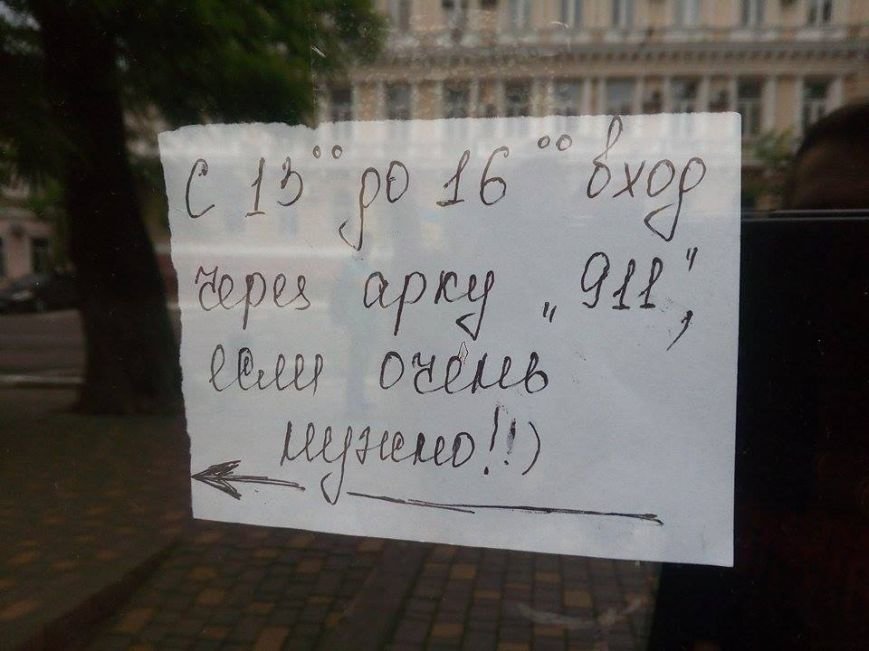 С 13⁰⁰ до 16⁰⁰ вход
через арку „911”,
если очень
нужно!!)